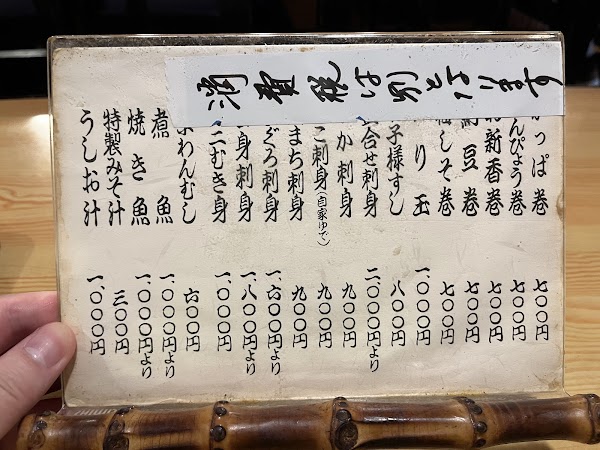 消費税は別となります
っぱ巻 七〇〇円
んぴょう巻 七〇〇円
新香巻 七〇〇円
豆巻 七〇〇円
しそ巻 七〇〇円
り玉 一、〇〇〇円
子様すし 八〇〇円
合せ刺身 二、〇〇〇円より
か刺身 九〇〇円
こ刺身(自家ゆで) 九〇〇円
まち刺身 九〇〇円
ぐろ刺身 一、六〇〇円より
身刺身 一、八〇〇円より
こむき身 一、〇〇〇円
わんむし 六〇〇円
煮魚 一、〇〇〇円より
焼き魚 一、〇〇〇円より
特製みそ汁 三〇〇円
うしお汁 一、〇〇〇円